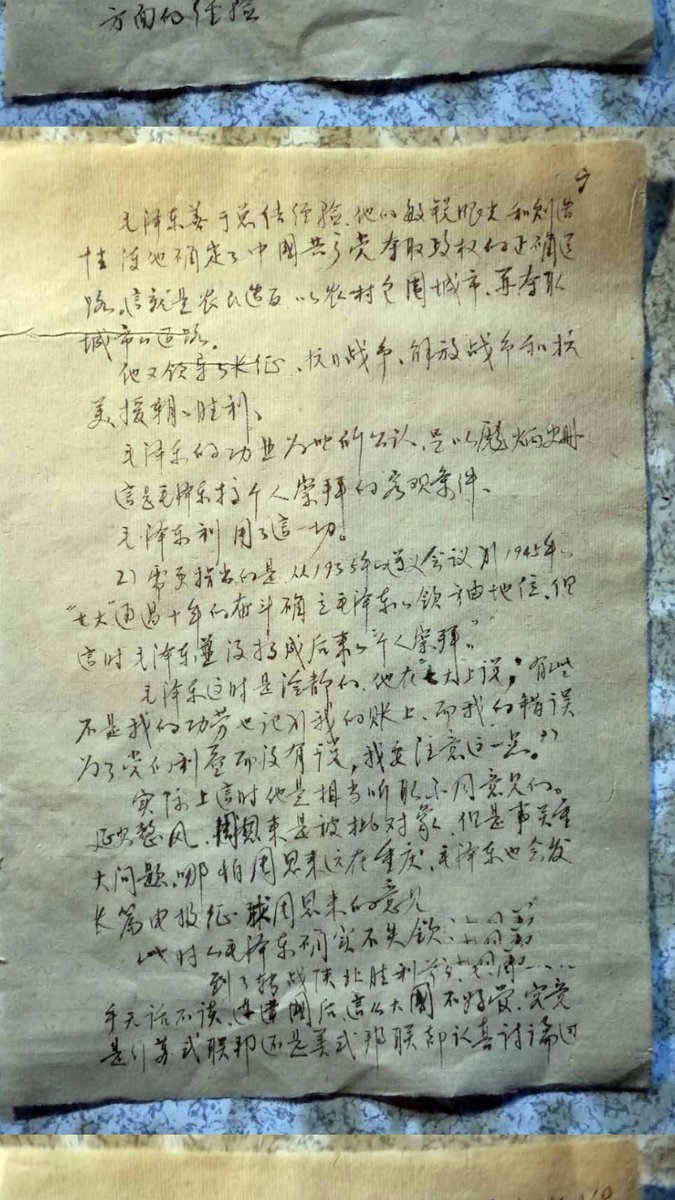 方面的经验
9
毛泽东善于总结经验、他的敏锐眼光和创造
性 使他确定了中國共产党夺取政权的正确道
路。這就是农民造反 以农村包围城市、再夺取
城市的道路。
他又领导了长征、抗日战争、解放战争和抗
美援朝的胜利、
毛泽东的功业为世所公认、足以彪炳史册、
這是毛泽东搞个人崇拜的客观条件、
毛泽东利用了這一切。
2) 需要指出的是、从1935年遵义会议到1945年
“七大”通过十年的奋斗确立毛泽东的领袖地位、但
這时毛泽东並没搞成后来的“个人崇拜”
毛泽东这时是冷静的、他在七大上说：“有些
不是我的功劳也记到我的账上、而我的错误
为了党的利益而没有谈，我要注意这一点。”
实际上這时他是相当听取不同意见的。
延安整风、周恩来是被批对象、但是事关重
大问题、哪怕周恩来远在重庆、毛泽东也会发
长篇电报征求周恩来的意见
此时的毛泽东确实不失领
到了转战陕北胜利
乎无话不谈、连建國后這么大國不好管、究竟
是行苏式联邦还是美式邦联都认真讨论过